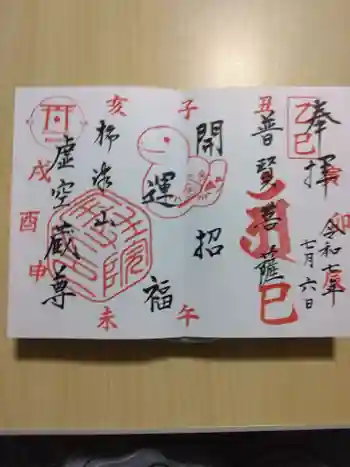 奉拝
令和七年
七月六日
乙巳
普賢菩薩
開運招福
虚空蔵尊
子
丑
卯
辰
巳
午
未
申
酉
戌
亥